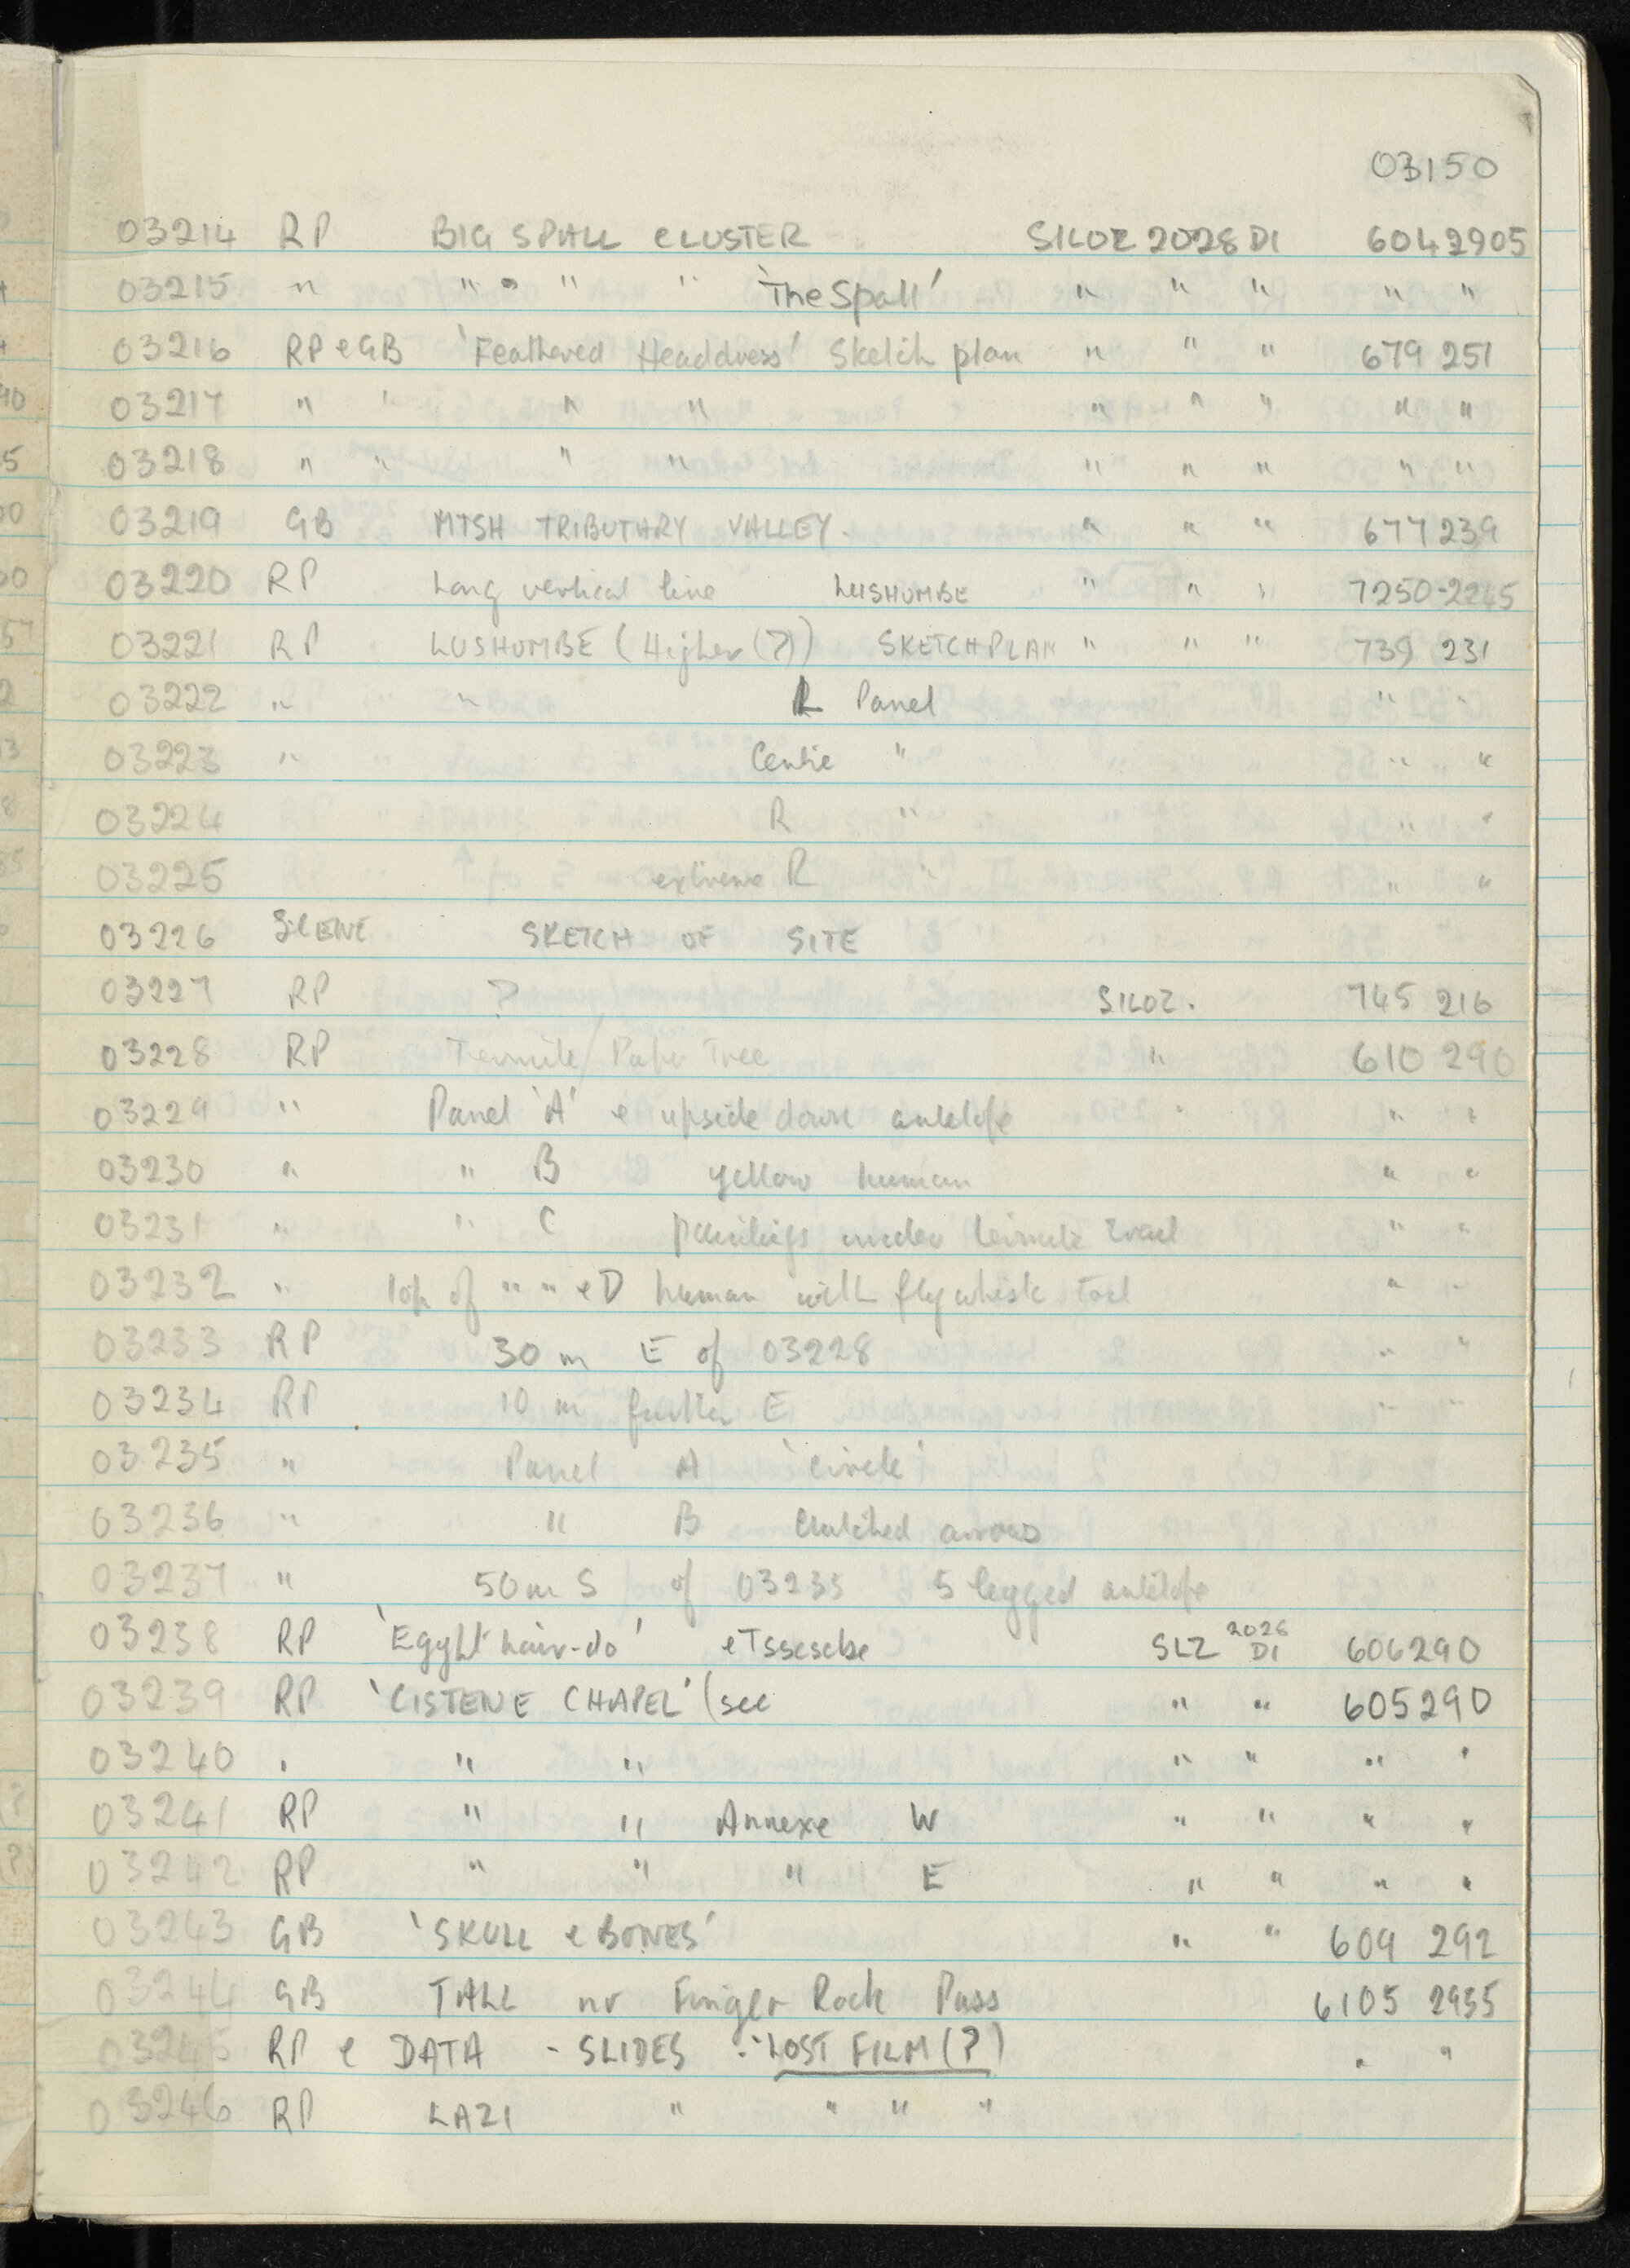 03150
03214 RP BIG SPALL CLUSTER SILOZ 2028 D1 6042905
03215 " " " " " 'The Spall' " " " " "
03216 RP e GB 'Feathered Headdress' Sketch plan " " " 679 251
03217 " " " " " " " " "
03218 " " " " " " " " "
03219 GB MTSH TRIBUTARY VALLEY. " " " 677239
03220 RP Long vertical line LUSHUMBE " " " 7250-2245
03221 RP LUSHUMBE (Higher (?)) SKETCHPLAN " " " 739 231
03222 " " L Panel " "
03223 " Centre " " " "
03224 R " " "
03225 extreme R " " "
03226 SKETCH OF SITE
03227 RP ? SILOZ. 745 216
03228 RP Termite / Paper Tree " 610 290
03229 " Panel 'A' e upside down antelope " " "
03230 " " B yellow human " "
03231 " " C paintings under termite trail " "
03232 " top of " " e D human with fly whisk tail " "
03233 RP 30 m E of 03228 " "
03234 RP 10 m further E " "
03235 " Panel A 'circle'
03236 " " B Clutched arrows
03237 " 50m S of 03235 5 legged antelope
03238 RP 'Egypt hair-do' e Tssesebe SLZ 2028 D1 606290
03239 RP 'CISTENE CHAPEL' (see " " 605290
03240 " " " " " " "
03241 RP " " Annexe W " " " "
03242 RP " " " E " " " "
03243 GB 'SKULL e BONES' " " 609 292
03244 GB TALL nr Finger Rock Pass 6105 2935
03245 RP e DATA - SLIDES :- LOST FILM (?) " "
03246 RP LAZI " " " "